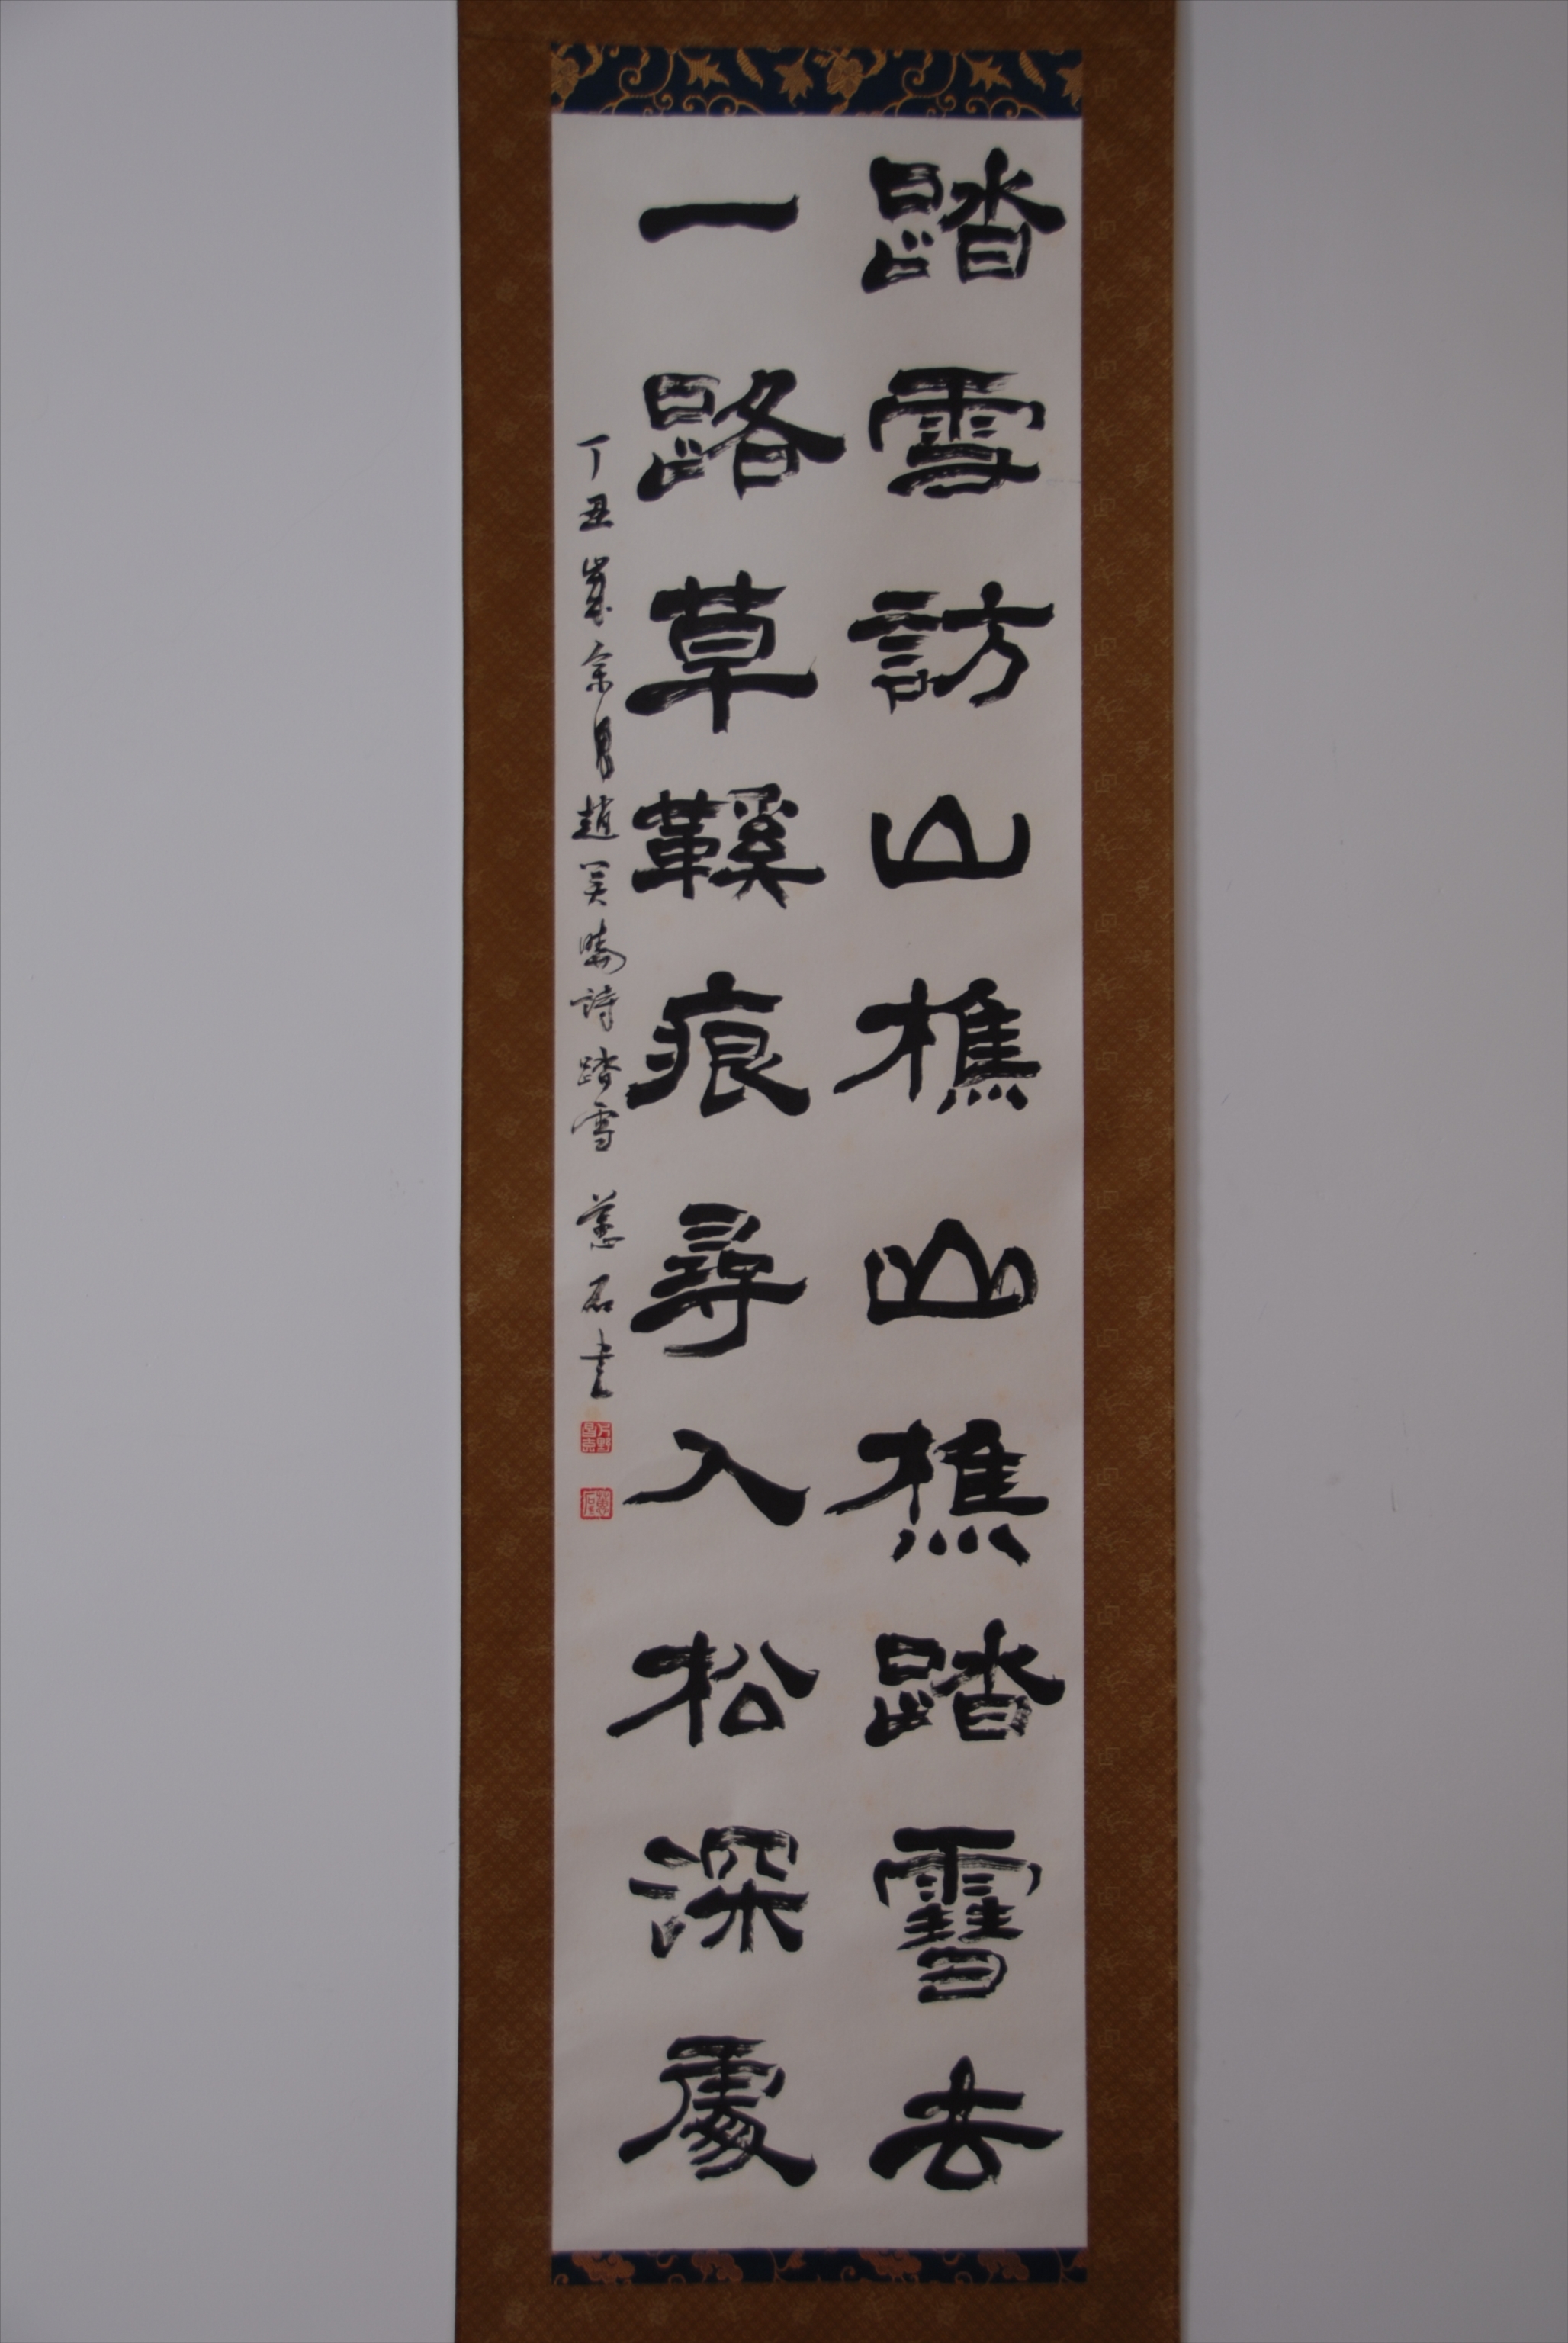 踏雪訪山樵山樵踏雪去
一路草鞵痕尋入松深處
丁丑歲余月趙關曉詩踏雪 蕙石書